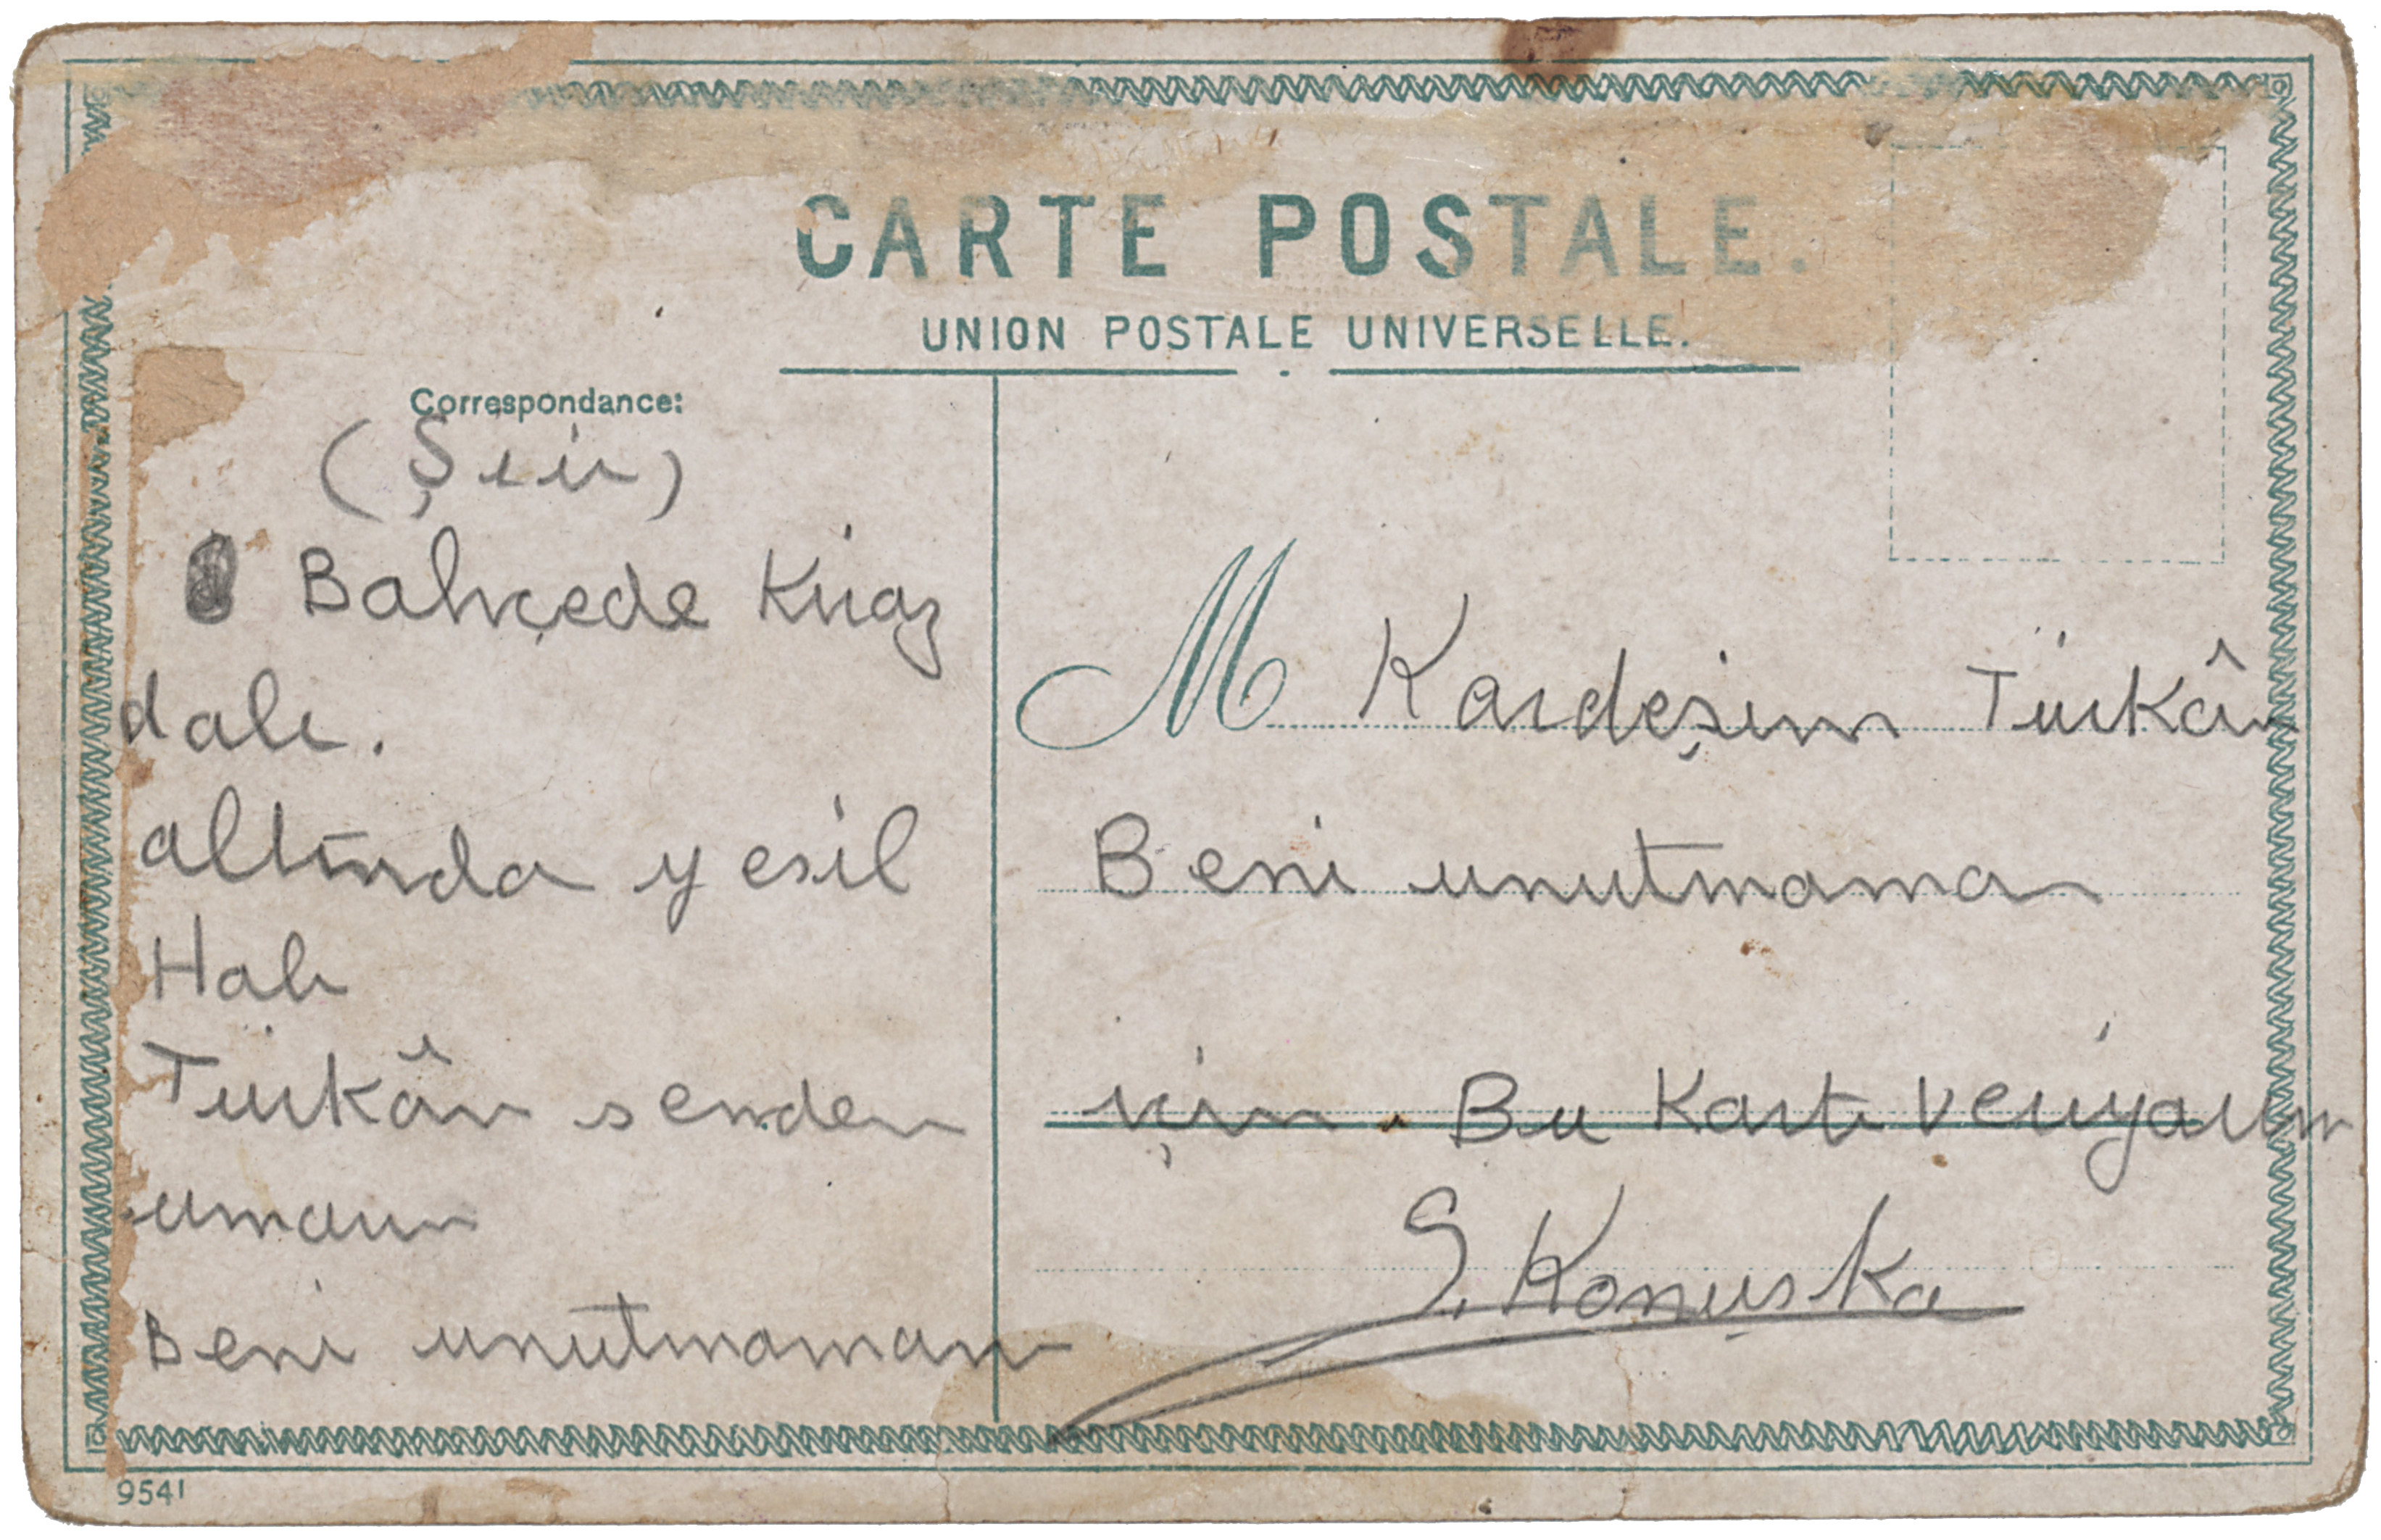 CARTE POSTALE.
UNION POSTALE UNIVERSELLE.
Correspondance:
(Şiir)
Bahçede Kiraz
dalı.
altında yeşil
Halı
Türkân senden
umarım
Beni unutmamanı
M Kardeşim Türkân
Beni unutmaman
için. Bu Kartı veriyorum
S. Konuşka
9541